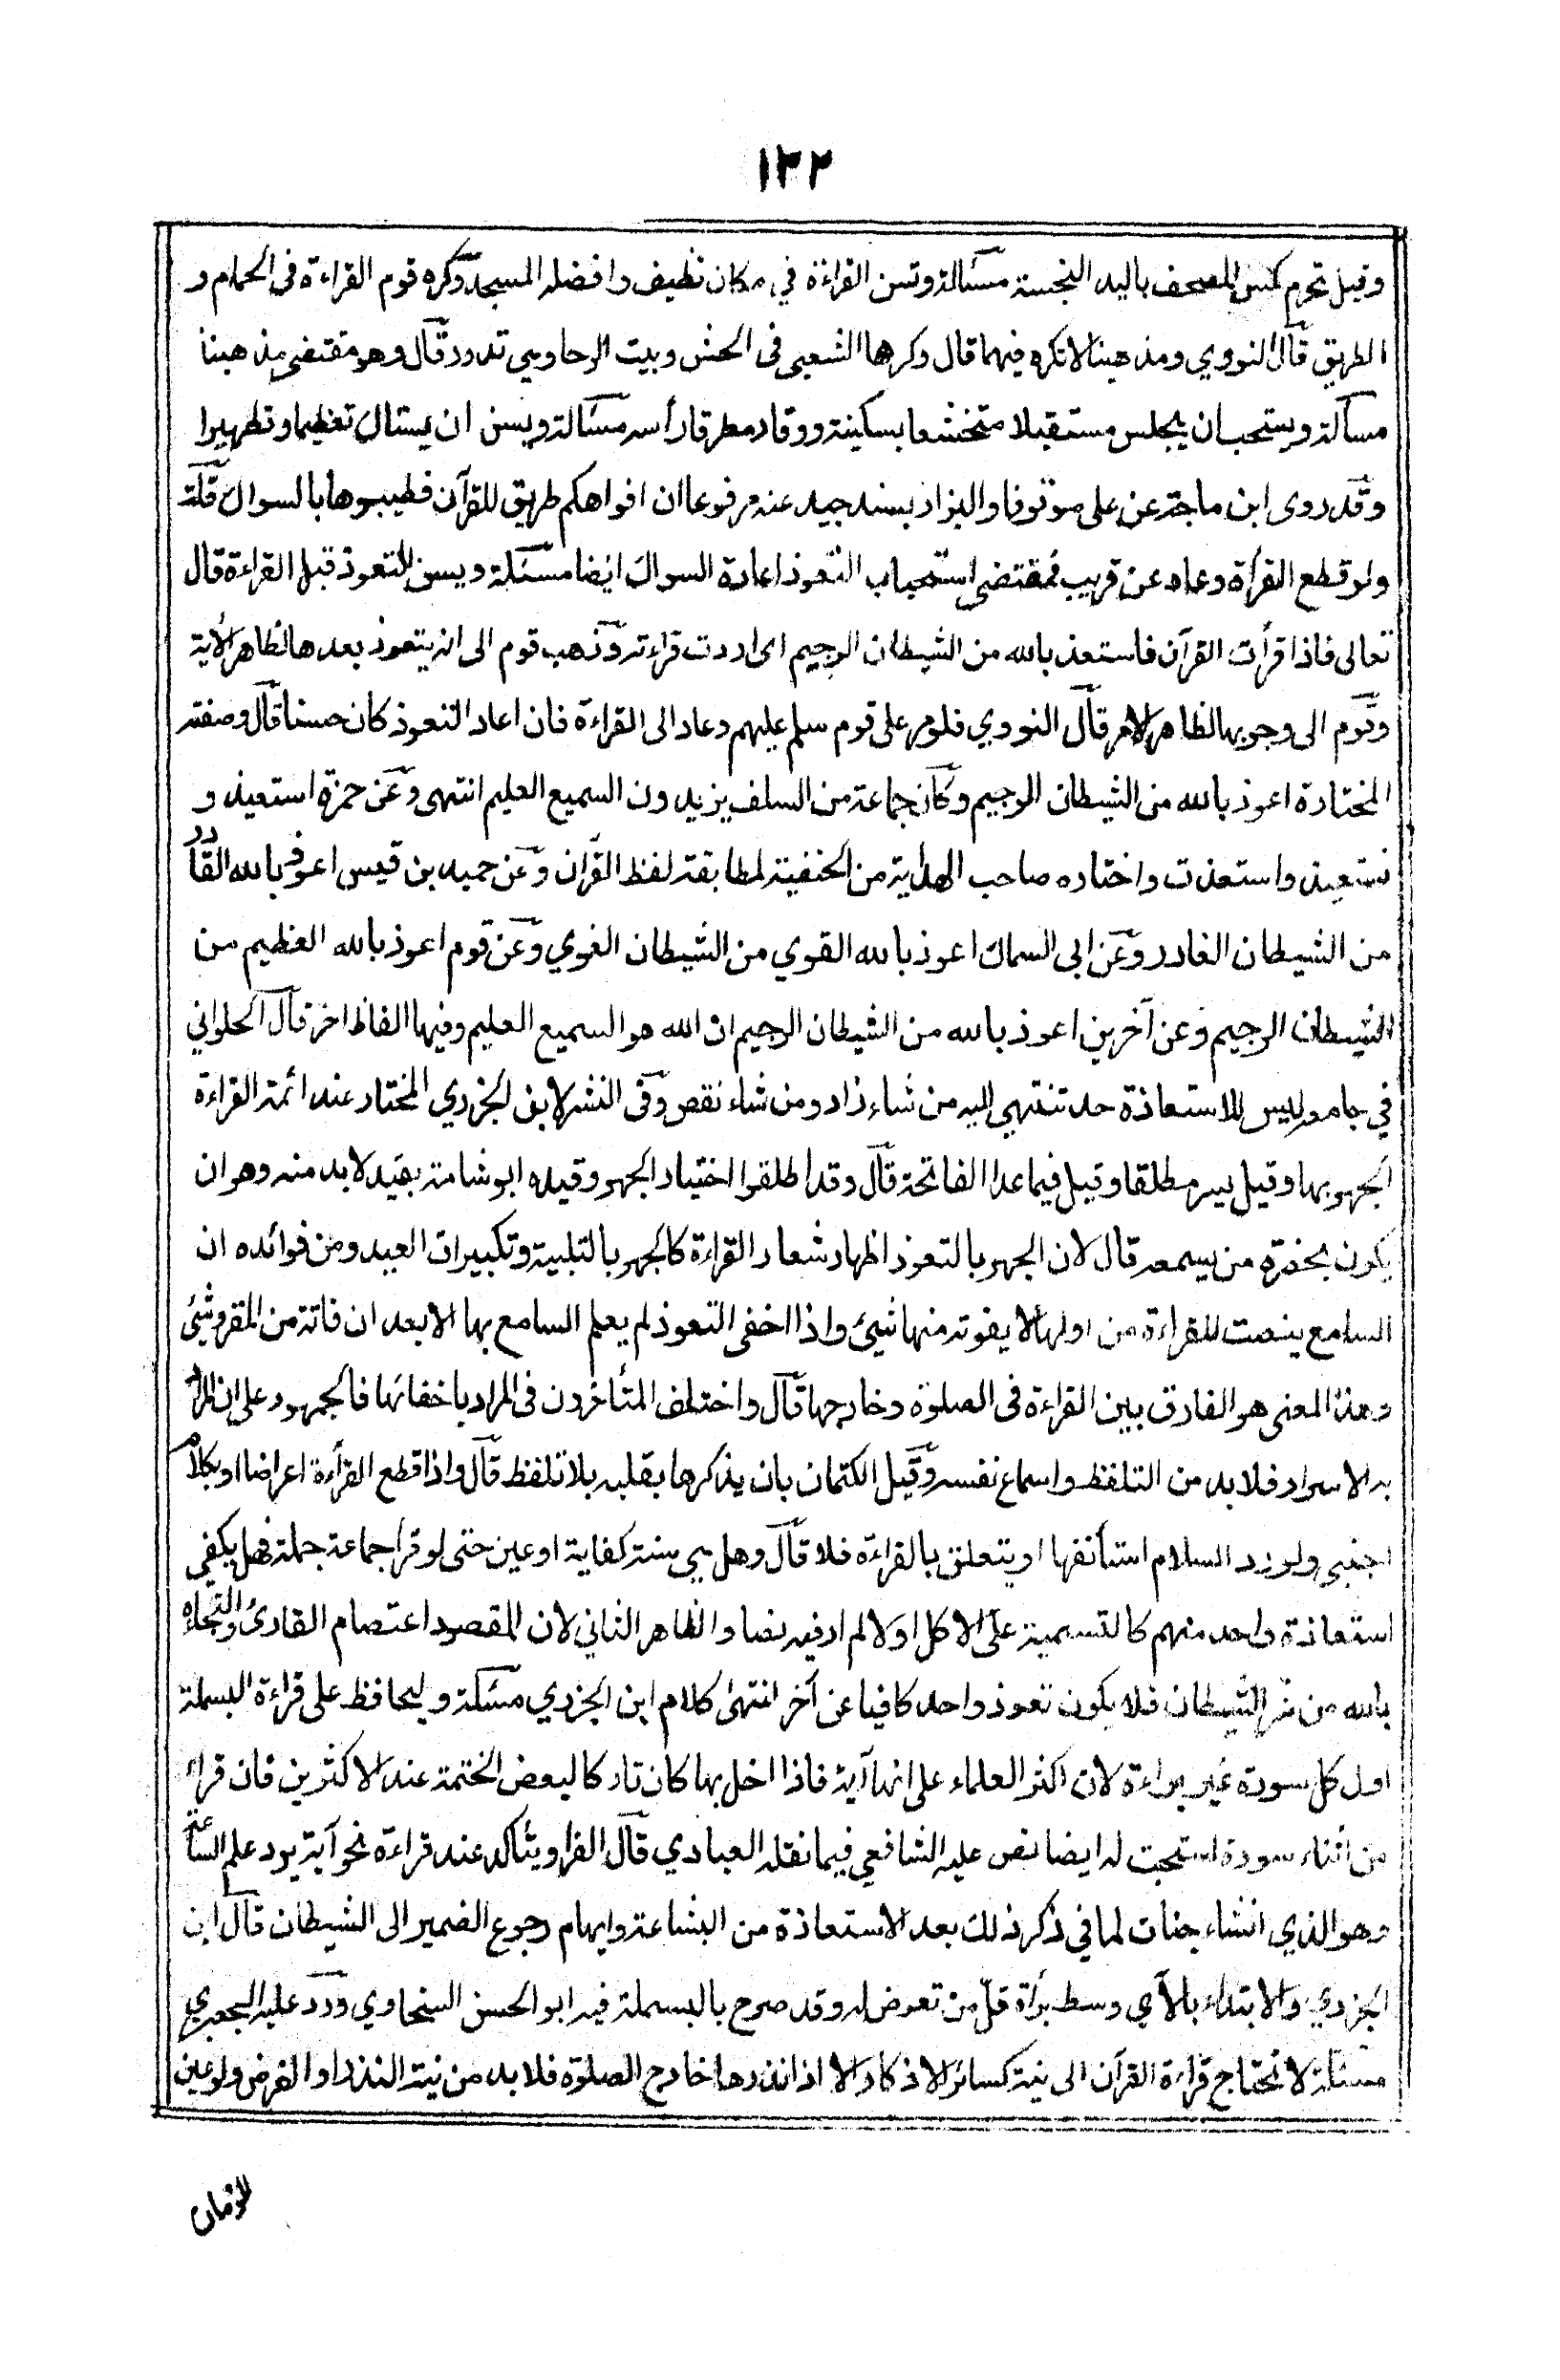 ١٣٢
وقيل تحرم كمس المصحف باليد النجسة مسئالة وتسن القراءة في مكان نظيف وافضله المسجد وكره قوم القراءة فى الحمام و
الطريق قال النووي ومذهبنا لا تكره فيهما قال وكرهها الشعبى فى الحش وبيت الرحا وهي تدور قال وهو مقتضى مذهبنا
مسألة ويستحب ان يجلس مستقبلا متخشعا بسكينة ووقار مطرقا رأسه مسئالة ويسن ان يستاك تعظيما وتطهيرا
وقد روى ابن ماجة عن على موقوفا والبزار بسند جيد عنه مرفوعا ان افواهكم طريق للقرآن فطيبوها بالسواك قلت
ولو قطع القرأة وعاد عن قريب فمقتضى استحباب التعوذ اعادة السواك ايضا مسئلة ويسن التعوذ قبل القراءة قال
تعالى فاذا قرأت القرآن فاستعذ بالله من الشيطان الرجيم اى اردت قراءته وذهب قوم الى انه يتعوذ بعدها لظاهر الأية
وقوم الى وجوبها لظاهر الامر قال النووي فلو مر على قوم سلم عليهم وعاد الى القراءة فان اعاد التعوذ كان حسنا قال وصفته
المختارة اعوذ بالله من الشيطان الرجيم وكان جماعة من السلف يزيدون السميع العليم انتهى وعن حمزة استعيذ و
نستعيذ واستعذت واختاره صاحب الهداية من الحنفية لمطابقته لفظ القرآن وعن حميد بن قيس اعوذ بالله القادر
من الشيطان الغادر وعن ابى السماك اعوذ بالله القوي من الشيطان الغوي وعن قوم اعوذ بالله العظيم من
الشيطان الرجيم وعن آخرين اعوذ بالله من الشيطان الرجيم ان الله هو السميع العليم وفيها الفاظ اخر قال الحلواني
في جامعه ليس للاستعاذة حد تنتهي اليه من شاء زاد ومن شاء نقص وفى النشر لابن الجزري المختار عند ائمة القراءة
الجهر بها وقيل يسر مطلقا وقيل فيما عدا الفاتحة قال وقد اطلقوا اختيار الجهر وقيده ابو شامة بقيد لابد منه وهو ان
يكون بحضرة من يسمعه قال لان الجهر بالتعوذ اظهار شعار القراءة كالجهر بالتلبية وتكبيرات العيد ومن فوائده ان
السامع ينصت للقراءة من اولها لا يفوته منها شيئ واذا اخفى التعوذ لم يعلم السامع بها الا بعد ان فاتة من المقرو شئ
وهذا المعنى هو الفارق بين القراءة فى الصلوة وخارجها قال واختلف المتأخرون فى المراد باخفائها فالجمهور على ان المراد
به الاسرار فلابد من التلفظ واسماع نفسه وقيل الكتمان بان يذكرها بقلبه بلا تلفظ قال واذا قطع القرأءة اعراضا او بكلام
اجنبى ولو رد السلام استأنفها او يتعلق بالقراءة فلا قال وهل هي سنة كفاية او عين حتى لو قرأ جماعة جملة فهل يكفي
استعاذة واحد منهم كالتسمية على الاكل او لا لم ار فيه نصا والظاهر الثاني لان المقصود اعتصام القارئ والتجاءه
بالله من شر الشيطان فلا يكون تعوذ واحد كافيا عن آخر انتهى كلام ابن الجزري مسئلة وليحافظ على قراءة البسملة
اول كل سورة غير براءة لان اكثر العلماء على انها آية فاذا اخل بها كان تاركا لبعض الختمة عند الاكثرين فان قرأ
من أثناء سورة استحبت له ايضا نص عليه الشافعي فيما نقله العبادي قال الفرا ويتأكد عند قراءة نحو آية يرد علم الساعة
وهو الذي انشاء جنات لما في ذكر ذلك بعد الاستعاذة من البشاعة وايهام رجوع الضمير الى الشيطان قال ابن
الجزري والابتداء بالآي وسط برأة قل من تعرض له وقد صرح بالبسملة فيه ابو الحسن السخاوي ورد عليه الجعبري
مسئلة لا تحتاج قراءة القرآن الى نية كسائر الاذكار الا اذا نذرها خارج الصلوة فلابد من نية النذر او الفرض ولو عين
الزمان